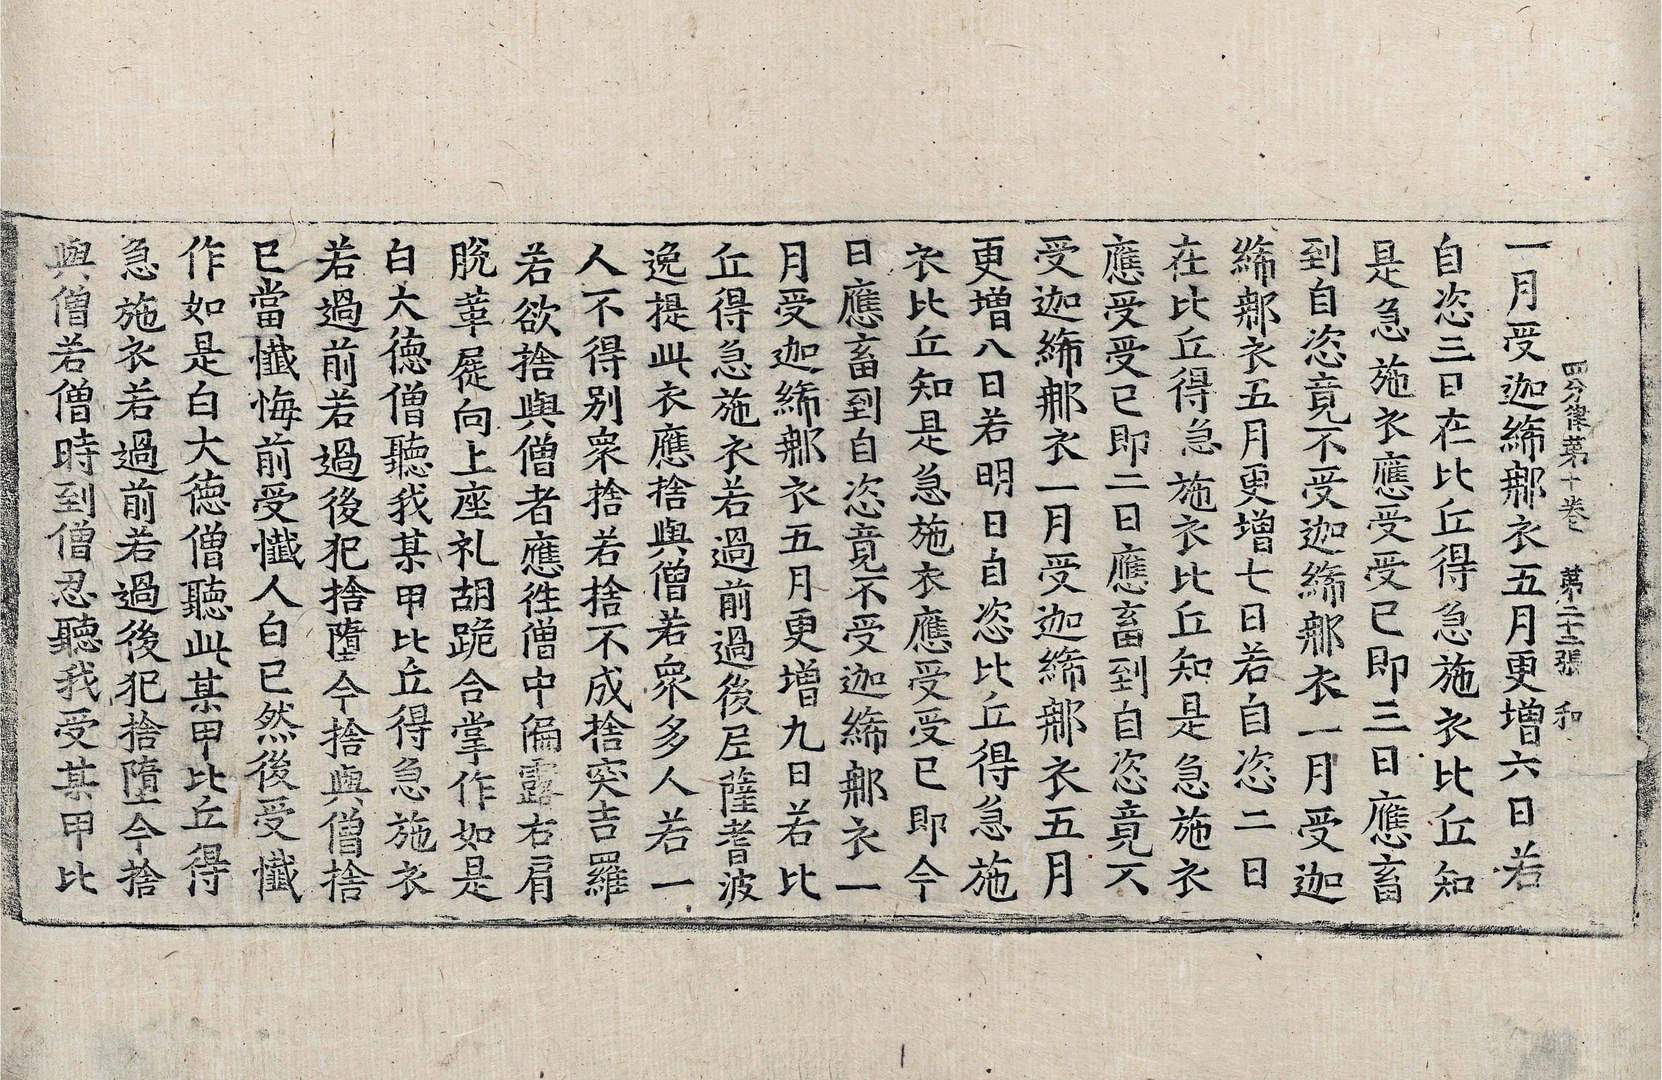 四分律第十卷 第二十二張 和
一月受迦絺那衣五月更增六日若
自恣三日在比丘得急施衣比丘知
是急施衣應受受已即三日應畜
到自恣竟不受迦絺那衣一月受迦
絺那衣五月更增七日若自恣二日
在比丘得急施衣比丘知是急施衣
應受受已即二日應畜到自恣竟不
受迦絺那衣一月受迦絺那衣五月
更增八日若明日自恣比丘得急施
衣比丘知是急施衣應受受已即今
日應畜到自恣竟不受迦絺那衣一
月受迦絺那衣五月更增九日若比
丘得急施衣若過前過後尼薩耆波
逸提此衣應捨與僧若眾多人若一
人不得別眾捨若捨不成捨突吉羅
若欲捨與僧者應往僧中偏露右肩
脫革屣向上座礼胡跪合掌作如是
白大德僧聽我某甲比丘得急施衣
若過前若過後犯捨墮今捨與僧捨
已當懺悔前受懺人白已然後受懺
作如是白大德僧聽此某甲比丘得
急施衣若過前若過後犯捨墮今捨
與僧若僧時到僧忍聽我受某甲比